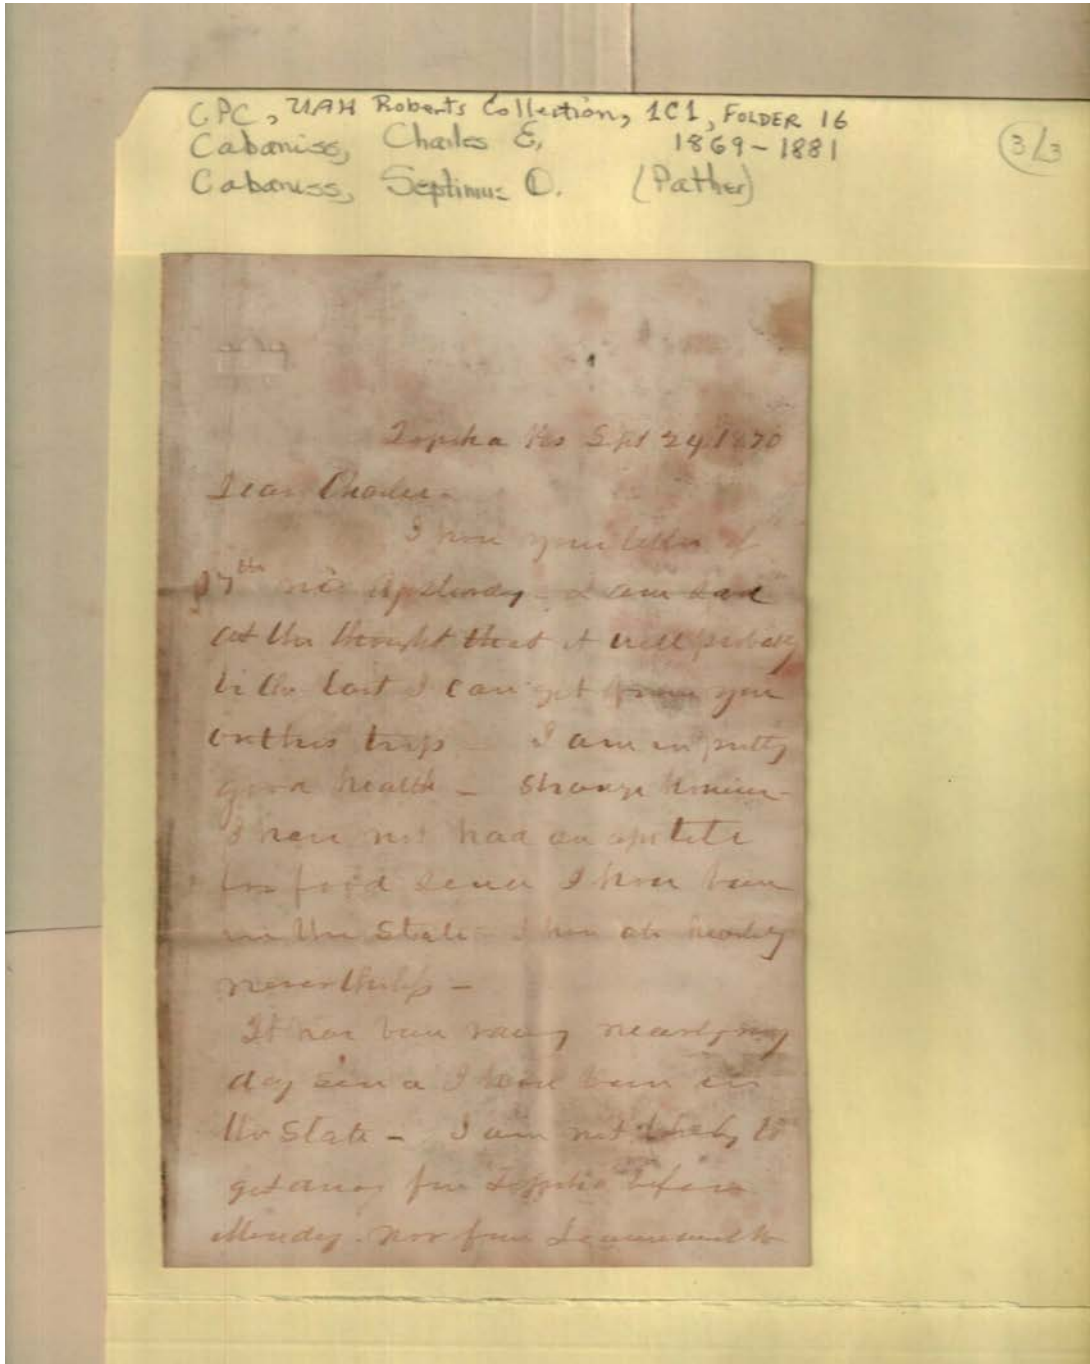 CPC, UAH Roberts Collection, 1C1, FOLDER 16
Cabaniss, Charles E. 1869-1881
3/3
Cabaniss, Septimus D. (Father)
Topeka Ks Sept 24 1870
Dear Charles-
I have your letter of
17th rec'd yesterday - I am sad
at the thought that it will probably
be the last I can get from you
on this trip - I am in pretty
good health - Strange however
I have not had an apetite
for food since I have been
in the State - I have ate heartily
nevertheless -
It has been rainy nearly every
day since I have been in
the State - I am not likely to
get away from Topeka before
Monday. nor from Leavenworth